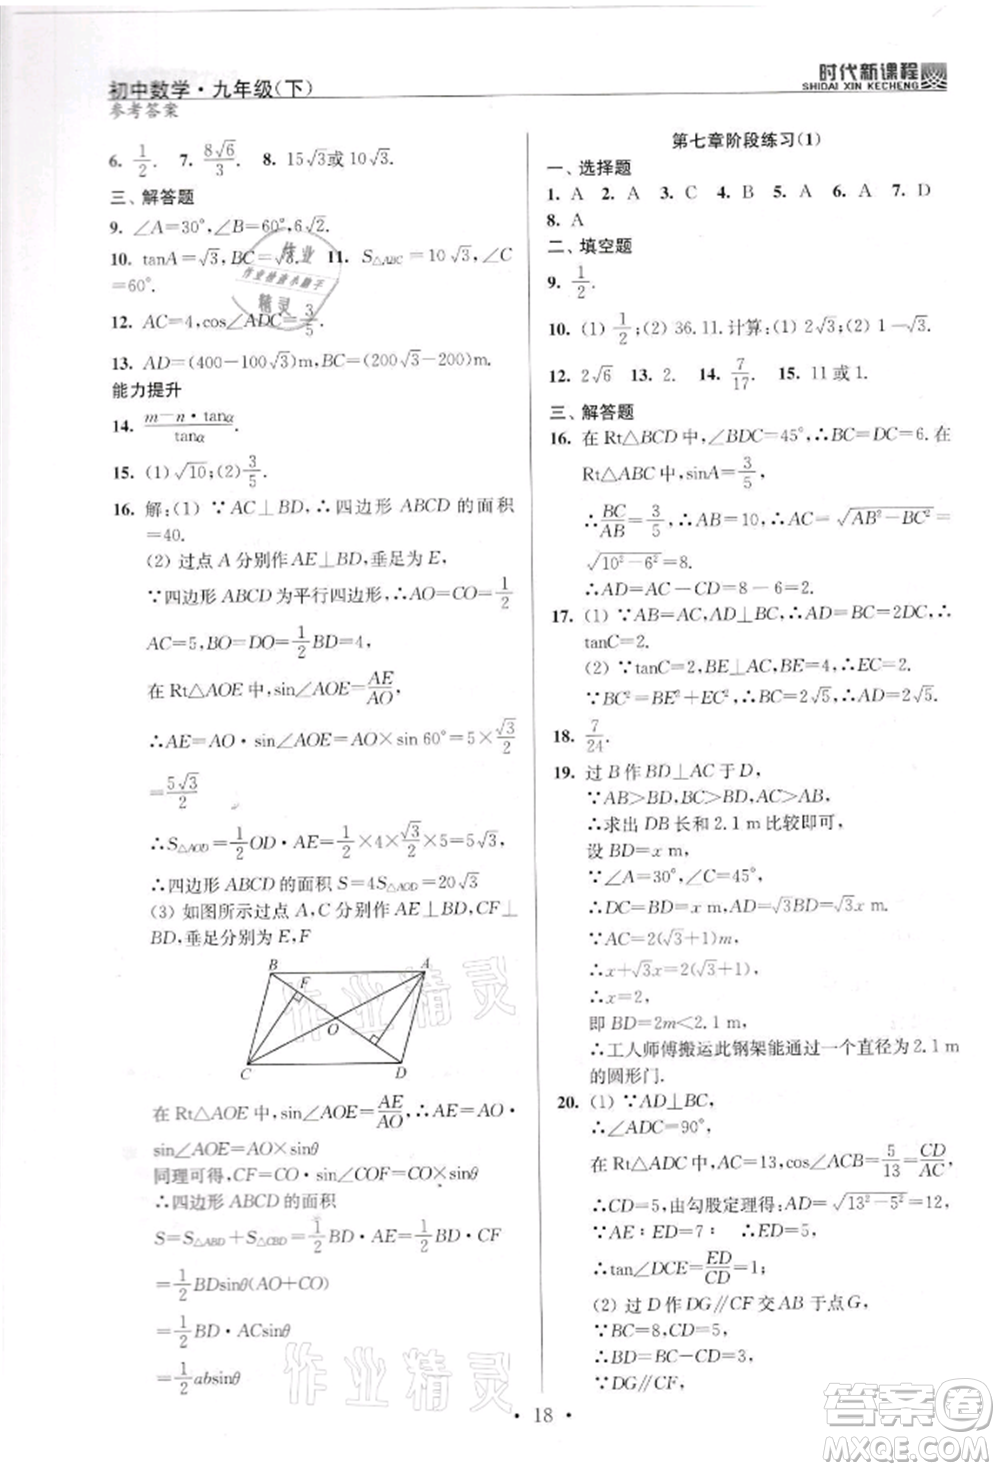 初中数学·九年级(下)
参考答案
时代新课程
SHIDAI XIN KECHENG
6. 1/2. 7. 8√6/3. 8. 15√3或10√3.
三、解答题
9. ∠A=30°,∠B=60°,6√2.
10. tanA=√3,BC=√8. 11. S△ABC=10√3,∠C
=60°.
12. AC=4,cos∠ADC=3/5.
13. AD=(400-100√3)m,BC=(200√3-200)m.
能力提升
14. (m-n·tanα)/tanα.
15. (1)√10;(2)3/5.
16. 解:(1) ∵AC⊥BD,∴四边形 ABCD 的面积
=40.
(2) 过点 A 分别作AE⊥BD,垂足为 E,
∵四边形 ABCD 为平行四边形,∴AO=CO=1/2
AC=5,BO=DO=1/2BD=4,
在 Rt△AOE 中,sin∠AOE=AE/AO,
∴AE=AO·sin∠AOE=AO×sin 60°=5×√3/2
=5√3/2
∴S△AOD=1/2OD·AE=1/2×4×√3/2×5=5√3
∴四边形 ABCD 的面积 S=4S△AOD=20√3
(3) 如图所示过点 A,C 分别作 AE⊥BD,CF⊥
BD,垂足分别为 E,F
B
A
F
O
C
D
在 Rt△AOE 中,sin∠AOE=AE/AO,∴AE=AO·
sin∠AOE=AO×sinθ
同理可得,CF=CO·sin∠COF=CO×sinθ
∴四边形 ABCD 的面积
S=S△ABD+S△CBD=1/2BD·AE+1/2BD·CF
=1/2BDsinθ(AO+CO)
=1/2BD·ACsinθ
=1/2absinθ
第七章阶段练习(1)
一、选择题
1. A 2. A 3. C 4. B 5. A 6. A 7. D
8. A
二、填空题
9. 1/2.
10. (1) 1/2;(2) 36. 11. 计算:(1) 2√3;(2) 1-√3.
12. 2√6 13. 2. 14. 7/17. 15. 11 或 1.
三、解答题
16. 在 Rt△BCD 中,∠BDC=45°,∴BC=DC=6. 在
Rt△ABC 中,sinA=3/5,
∴BC/AB=3/5,∴AB=10,∴AC=√(AB²-BC²)=
√(10²-6²)=8.
∴AD=AC-CD=8-6=2.
17. (1) ∵AB=AC,AD⊥BC,∴AD=BC=2DC,∴
tanC=2.
(2) ∵tanC=2,BE⊥AC,BE=4,∴EC=2.
∵BC²=BE²+EC²,∴BC=2√5,∴AD=2√5.
18. 7/24.
19. 过 B 作 BD⊥AC 于 D,
∵AB>BD,BC>BD,AC>AB,
∴求出 DB 长和 2.1 m 比较即可,
设 BD=x m,
∵∠A=30°,∠C=45°,
∴DC=BD=x m,AD=√3BD=√3x m.
∵AC=2(√3+1)m,
∴x+√3x=2(√3+1),
∴x=2,
即 BD=2m<2.1 m,
∴工人师傅搬运此钢架能通过一个直径为 2.1 m
的圆形门.
20. (1) ∵AD⊥BC,
∴∠ADC=90°,
在 Rt△ADC 中,AC=13,cos∠ACB=5/13=CD/AC,
∴CD=5,由勾股定理得:AD=√(13²-5²)=12,
∵AE∶ED=7∶ ∴ED=5,
∴tan∠DCE=ED/CD=1;
(2) 过 D 作 DG∥CF 交 AB 于点 G,
∵BC=8,CD=5,
∴BD=BC-CD=3,
∵DG∥CF,
·18·
作业精灵
作业精灵
作业
作业检查小助手
精灵
答案圈
MXQE.COM